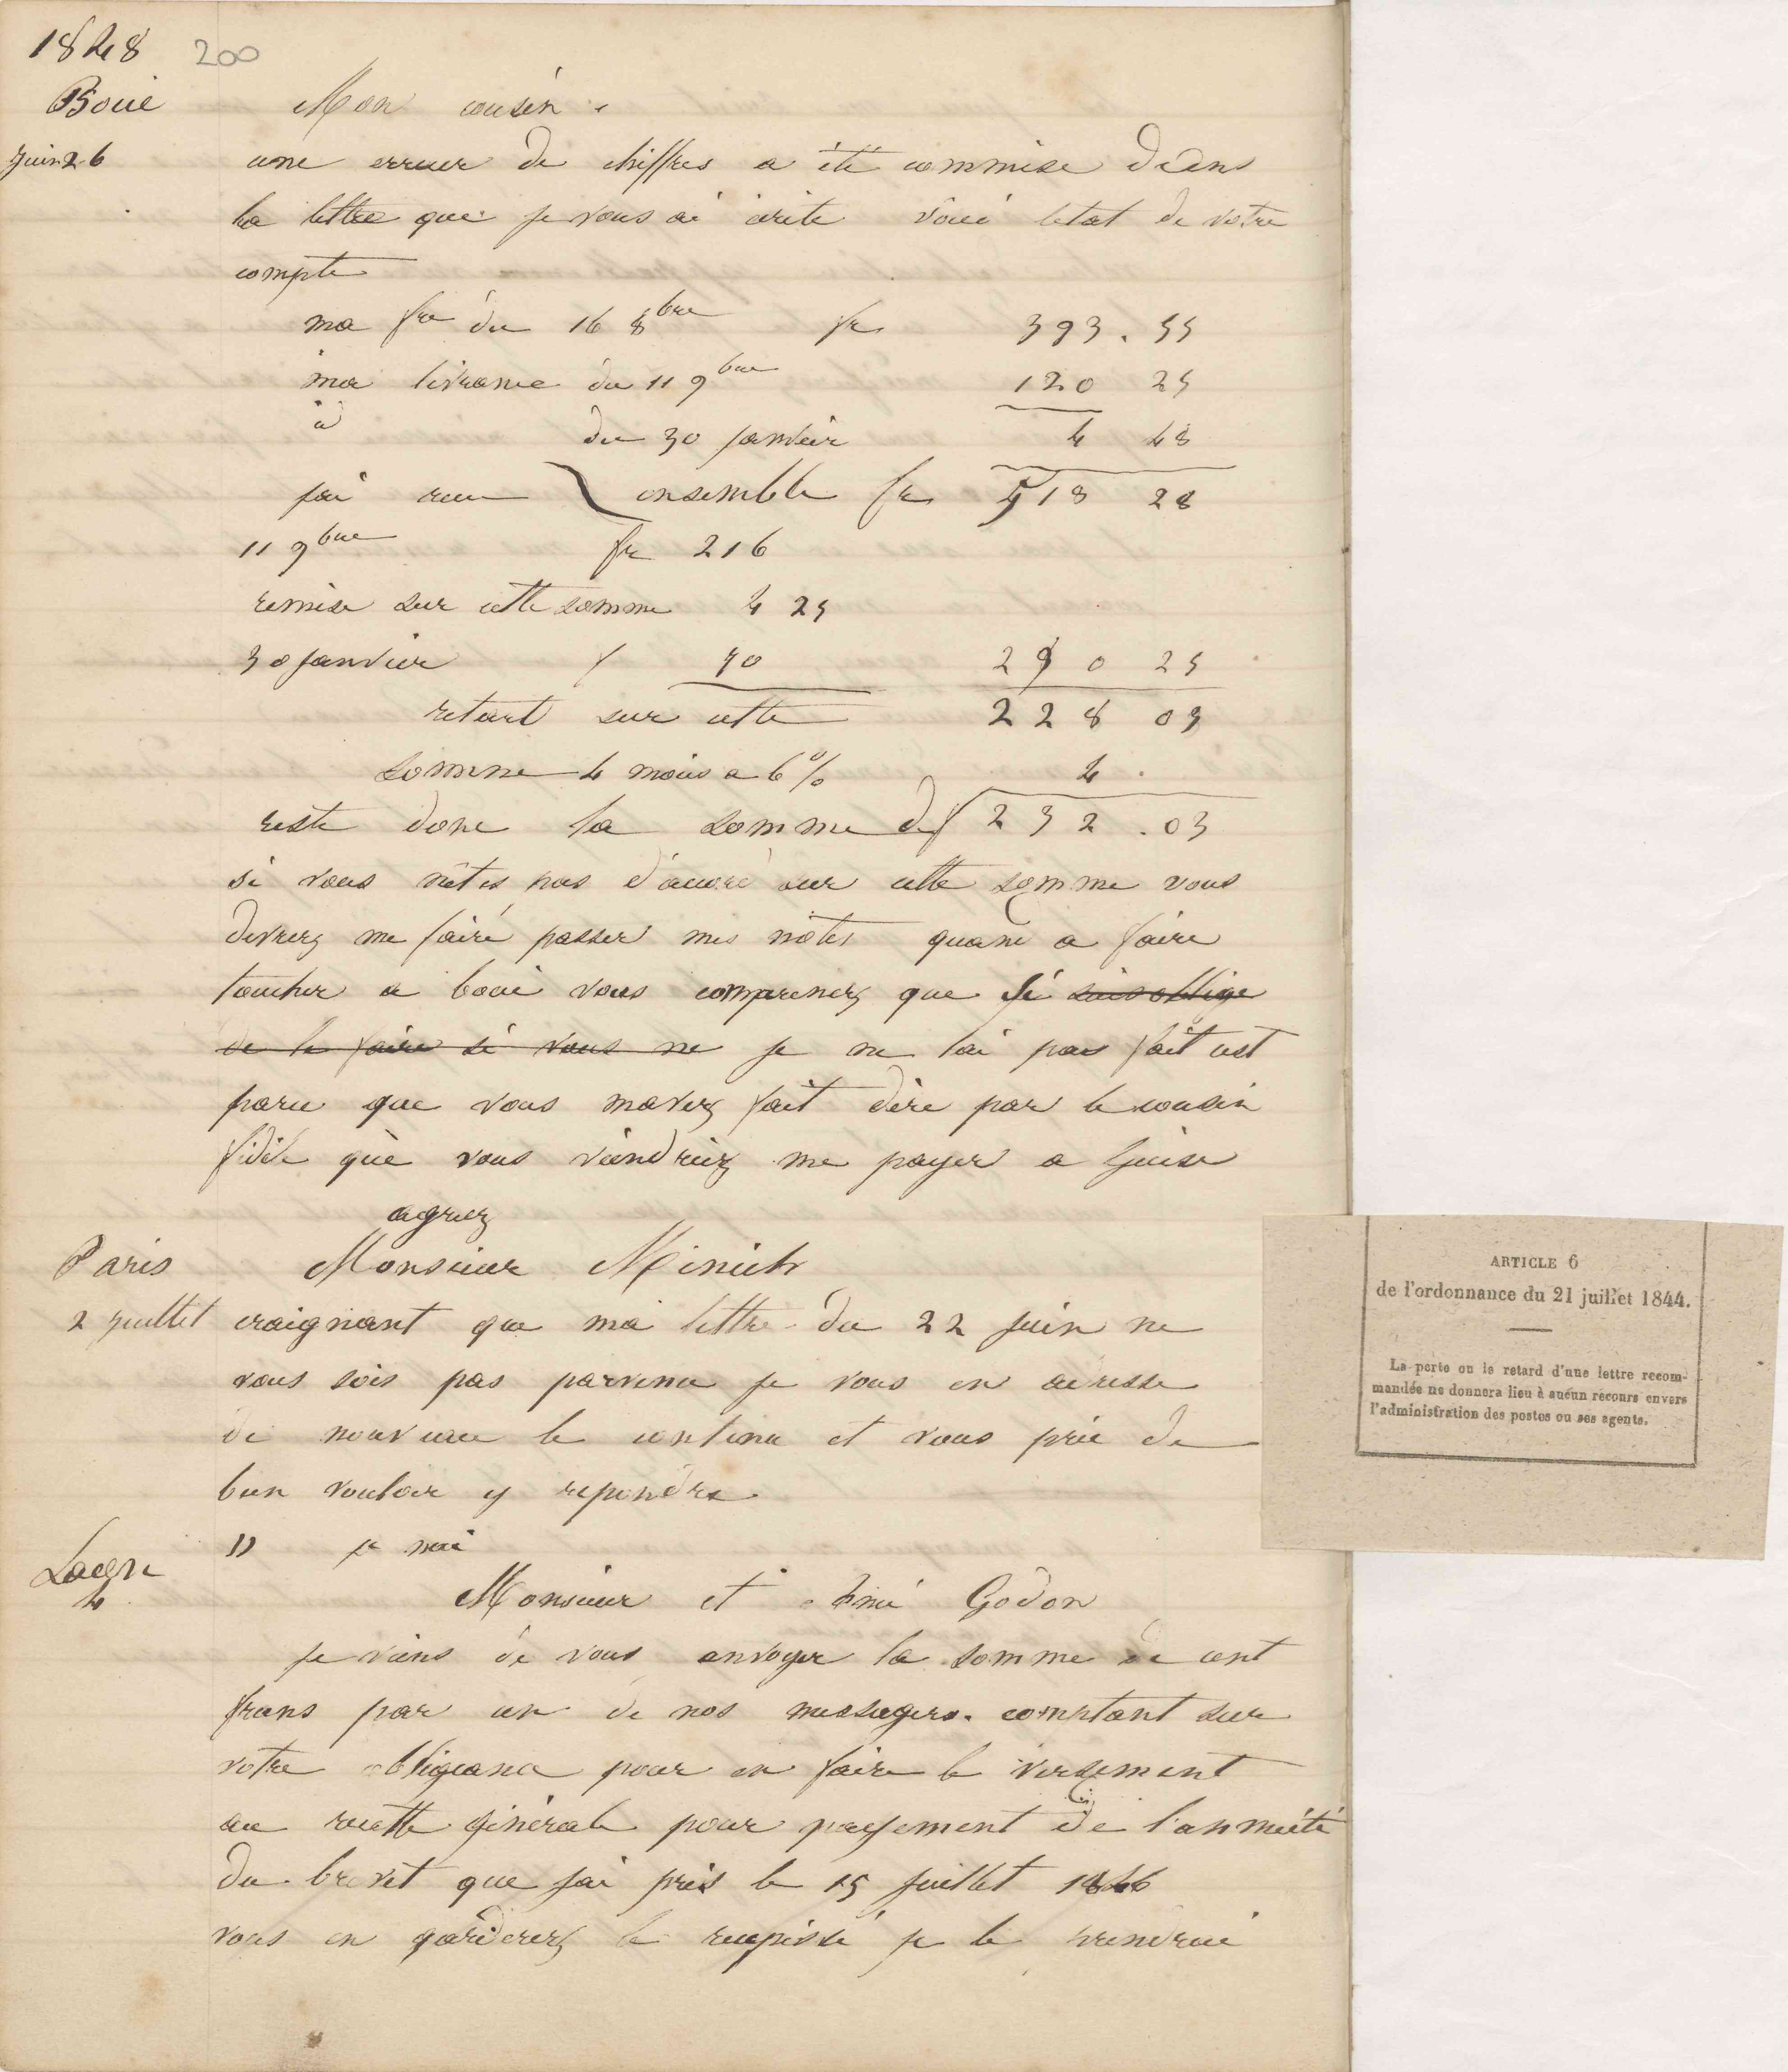 1848 200
Boué Mon cousin.
Juin 26 une erreur de chiffres a été commise dans
la lettre que je vous ai écrite voici letat de votre
compte
ma fre du 16 8bre fr 393.55
ma livrance du 11 9bre 120 25
id du 30 janvier 4 48
jai recu ensemble fr 518 28
11 9bre fr 216
remise sur cette somme 4 25
30 janvier f 70 290 25
retart sur cette 228 03
somme 4 mois a 6% 4.
reste donc la somme de f 232.03
si vous nêtes pas d'accord sur cette somme vous
devrez me faire passer mes notes quand a faire
toucher a boué vous comprenez que si suis obligé
de le faire si vous ne je ne lai pas fait cest
parce que vous mavez fait dire par le cousin
fidèle que vous viendriez me payer a Guise
agreez
Paris Monsieur Minich
2 juillet craignant que ma lettre du 22 juin ne
vous sois pas parvenu je vous en adresse
de nouveau le contenu et vous prie de
bien vouloir y repondre
" je nai
Laon
4 Monsieur et ami Godon
je viens de vous envoyer la somme de cent
frans par un de nos messagers. comptant sur
votre obligeance pour en faire le versement
au recette générale pour payement de l'annuité
du brevet que jai pris le 15 juillet 1846
vous en garderez le recepissé je le prendrai
ARTICLE 6
de l'ordonnance du 21 juillet 1844.
La perte ou le retard d'une lettre recom-
mandée ne donnera lieu à aucun recours envers
l'administration des postes ou ses agents.